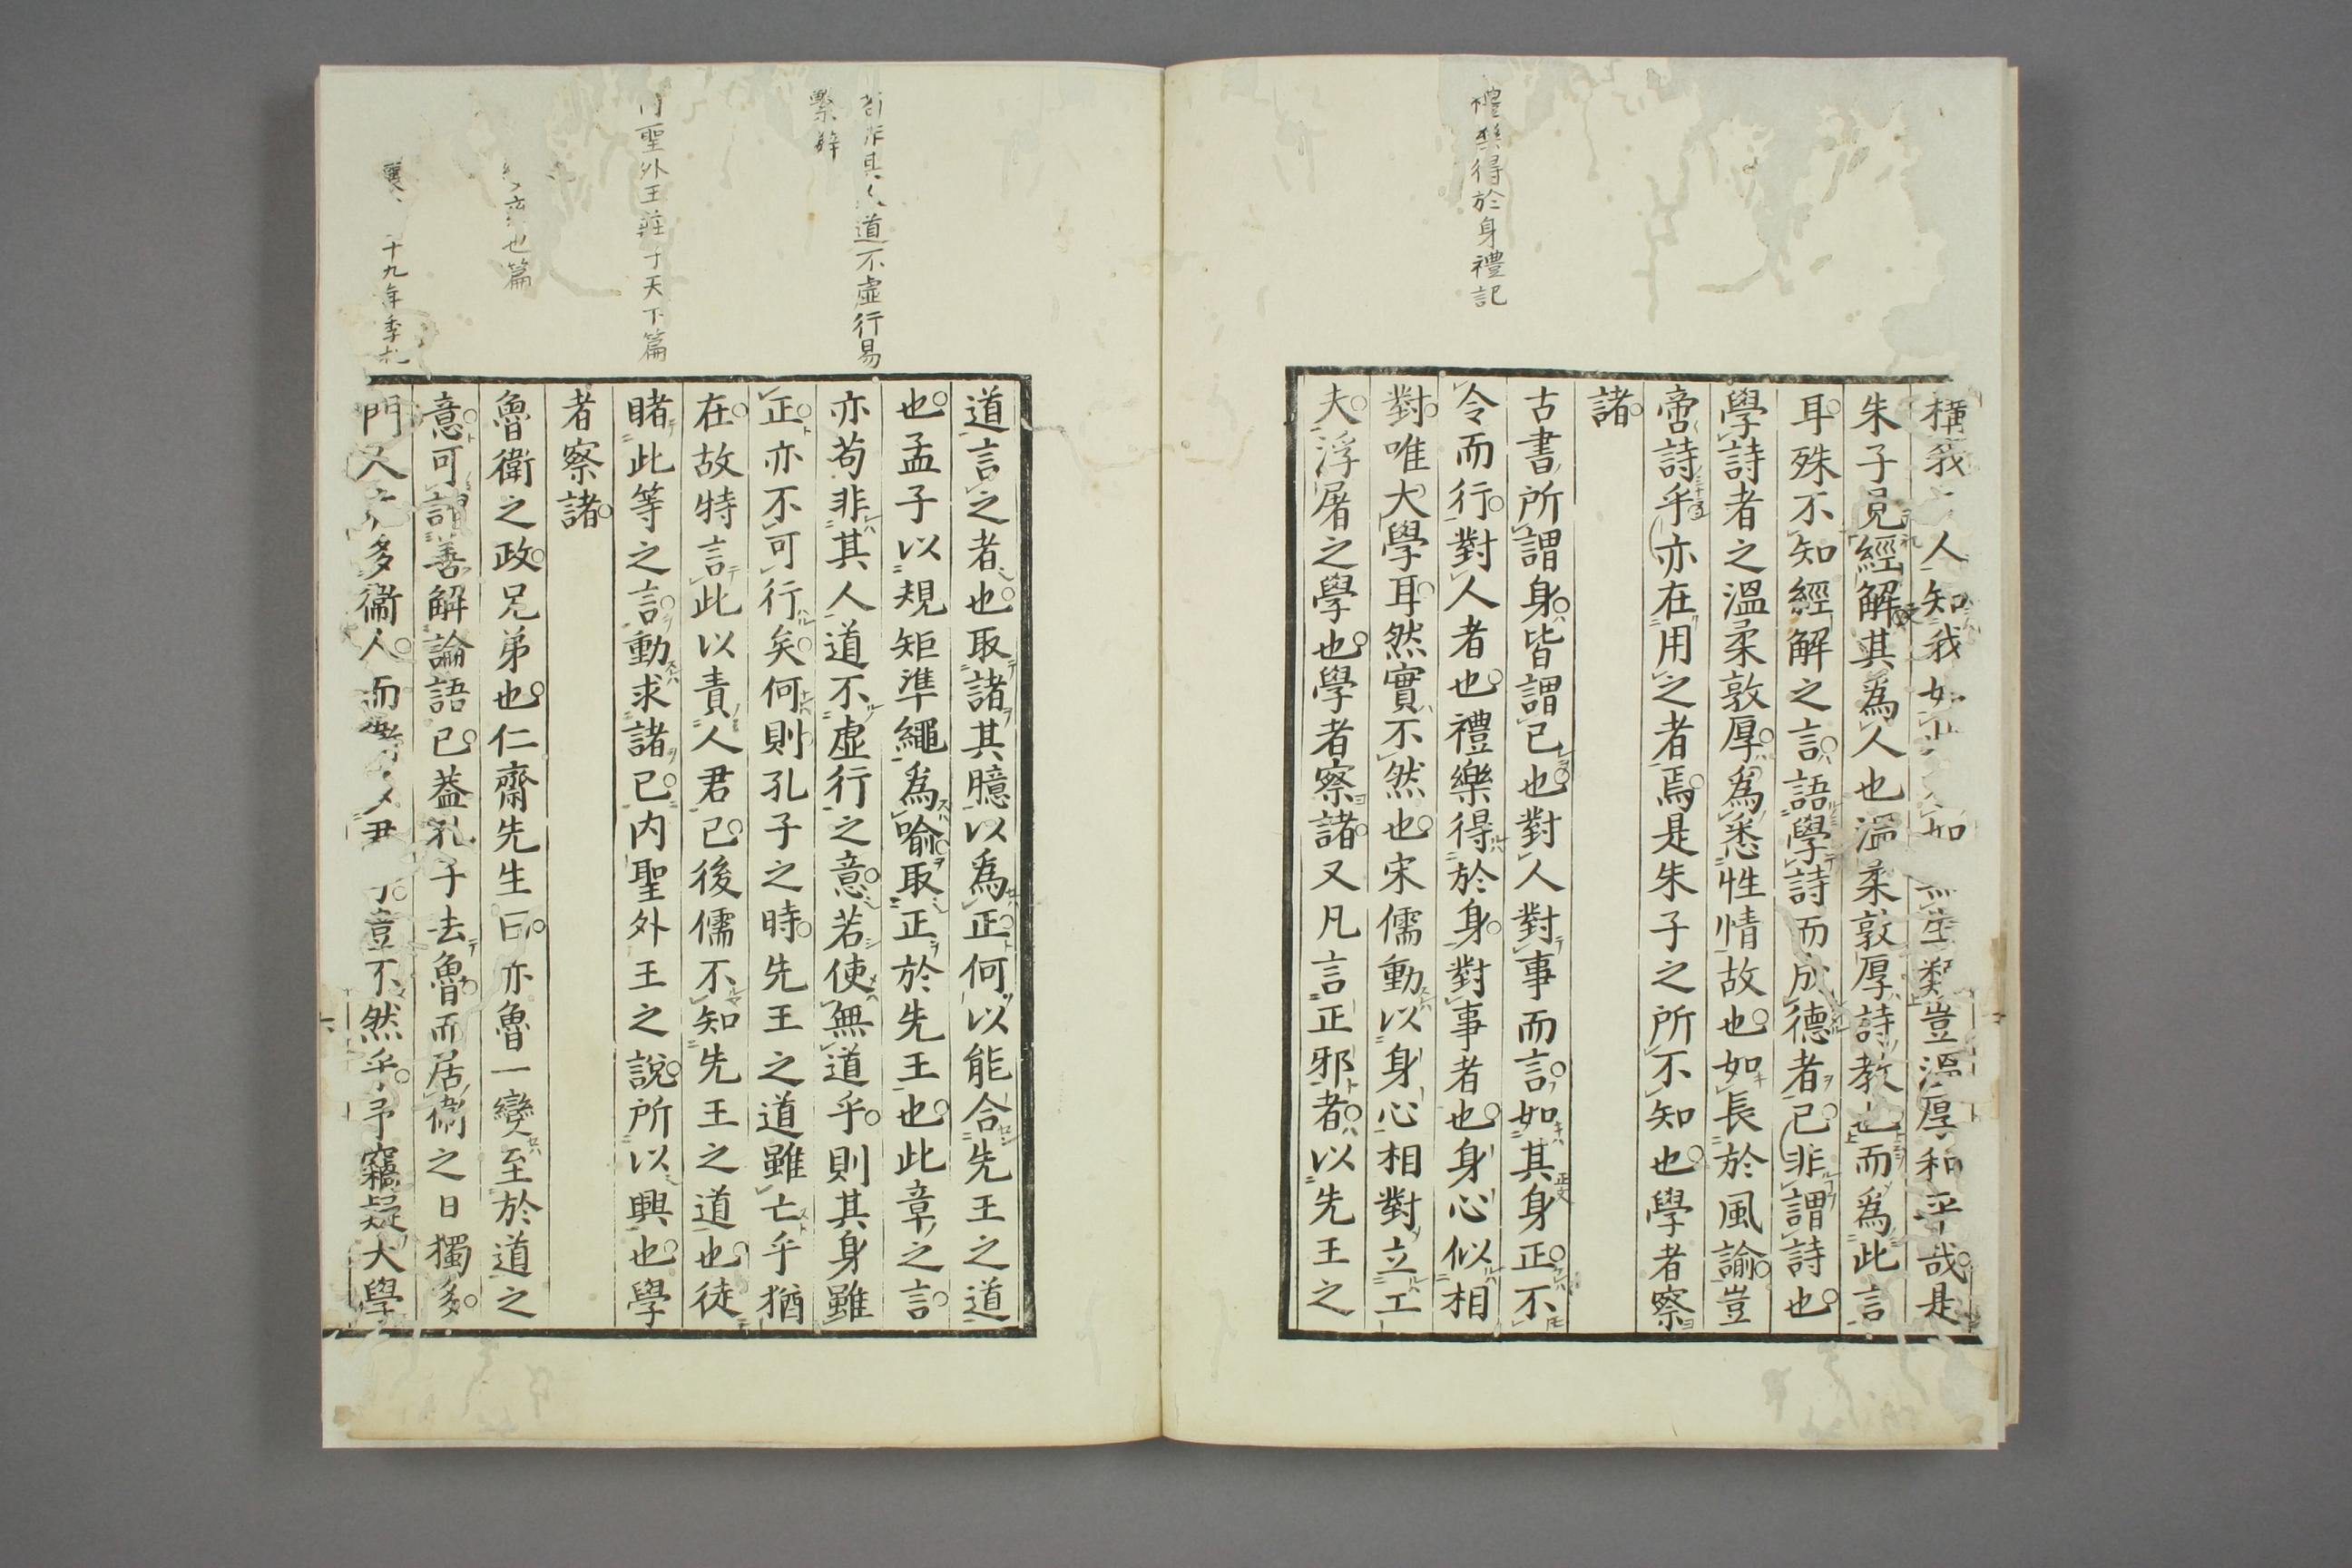 禮樂得於身禮記
構我二人知我如此不如無生類豈溫厚和平哉是
朱子見經解其爲人也溫柔敦厚詩教也而爲此言
耳殊不知經解之言語學詩而成德者已非謂詩也
學詩者之溫柔敦厚爲悉性情故也如長於風諭豈
啻詩乎亦在用之者焉是朱子之所不知也學者察
諸
古書所謂身皆謂己也對人對事而言如其身正不
令而行對人者也禮樂得於身對事者也身心似相
對唯大學耳然實不然也宋儒動以身心相對立工
夫浮屠之學也學者察諸又凡言正邪者以先王之
苟非其人道不虛行易
繫辭
內聖外王莊子天下篇
也篇
襄 十九年季札
道言之者也取諸其臆以爲正何以能合先王之道
也孟子以規矩準繩爲喻取正於先王也此章之言
亦苟非其人道不虛行之意若使無道乎則其身雖
正亦不可行矣何則孔子之時先王之道雖亡乎猶
在故特言此以責人君已後儒不知先王之道也徒
睹此等之言動求諸己內聖外王之說所以興也學
者察諸
魯衛之政兄弟也仁齋先生曰亦魯一變至於道之
意可謂善解論語已蓋孔子去魯而居衛之日獨多
門人 多衞人而 豈不然乎予竊疑大學